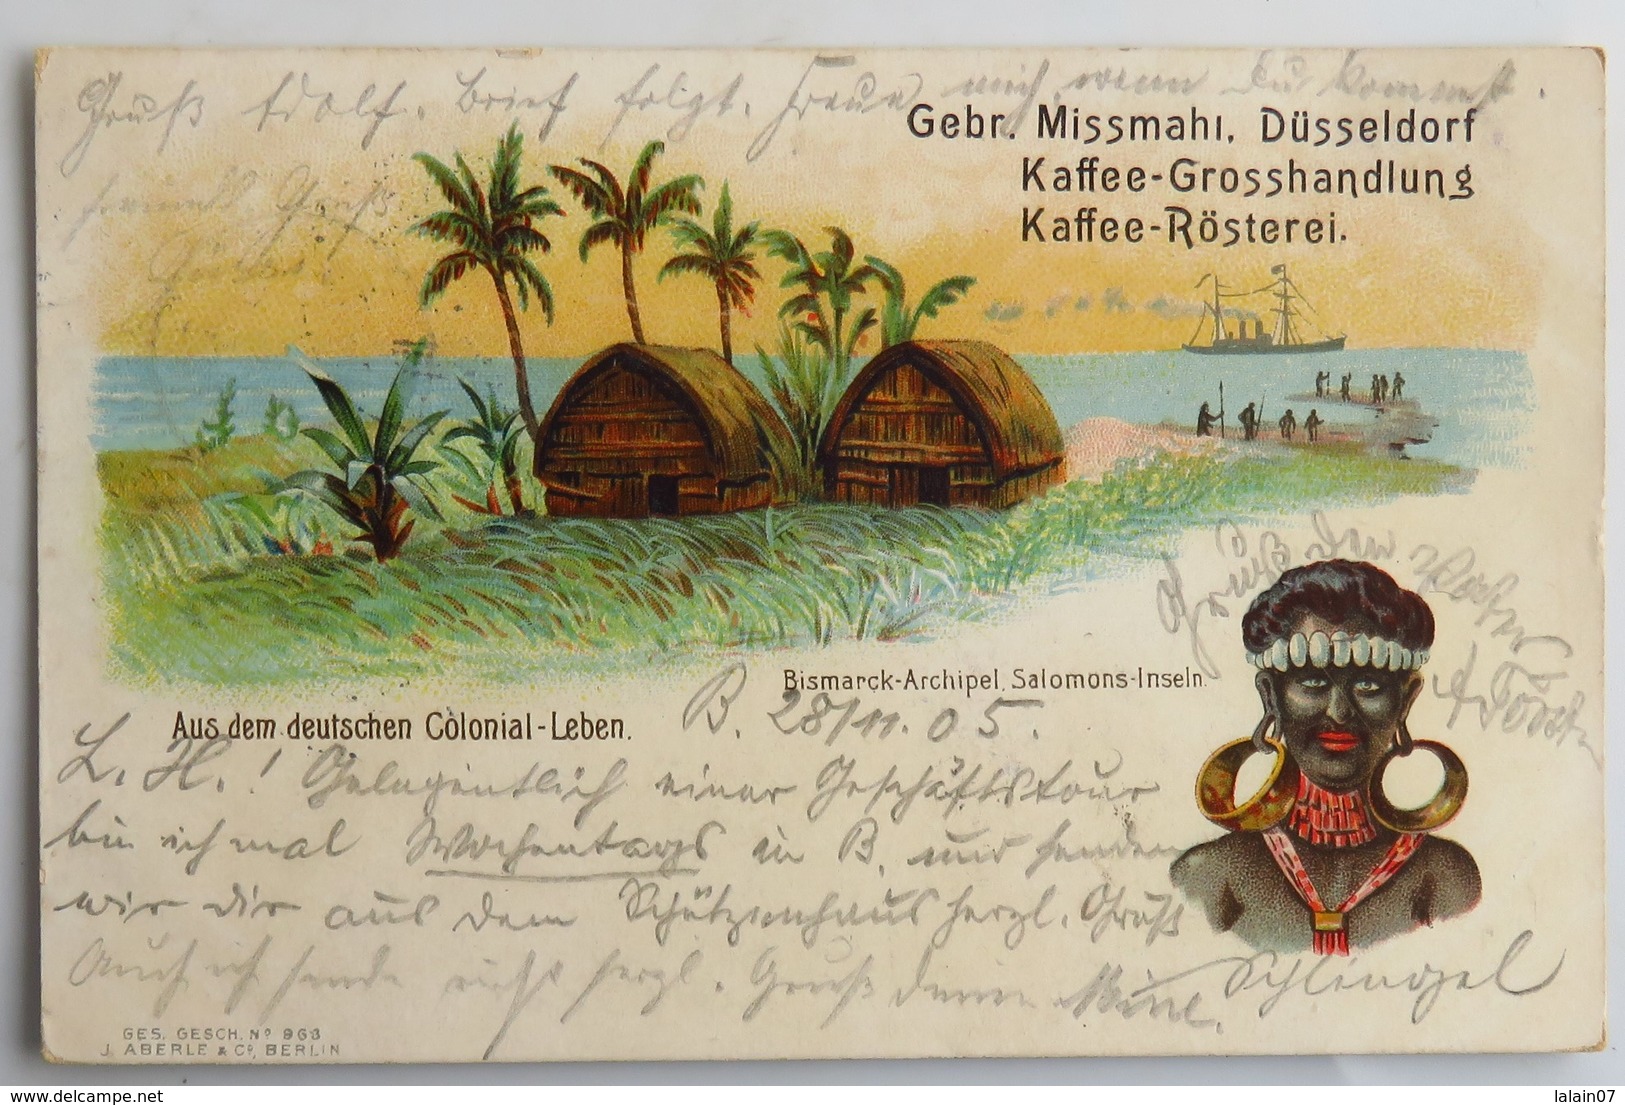 Gruß Adolf. Brief folgt. Freue mich, wenn Du kommst.
Gebr. Missmahl, Düsseldorf
Kaffee-Grosshandlung
Kaffee-Rösterei.
Gruß
Gruß den
Bismarck-Archipel, Salomons-Inseln.
Aus dem deutschen Colonial-Leben.
B. 28/11.05.
L. H.! Gelegentlich einer Geschäftstour
bin ich mal Wochentags in B. und senden
wir dir aus dem Schützenhaus herzl. Grüße
Auch ich sende recht herzl. Gruß deine Mine.
Schlingel
GES. GESCH. Nº 963
J. ABERLE & Cº, BERLIN
delcampe.net
lalain07